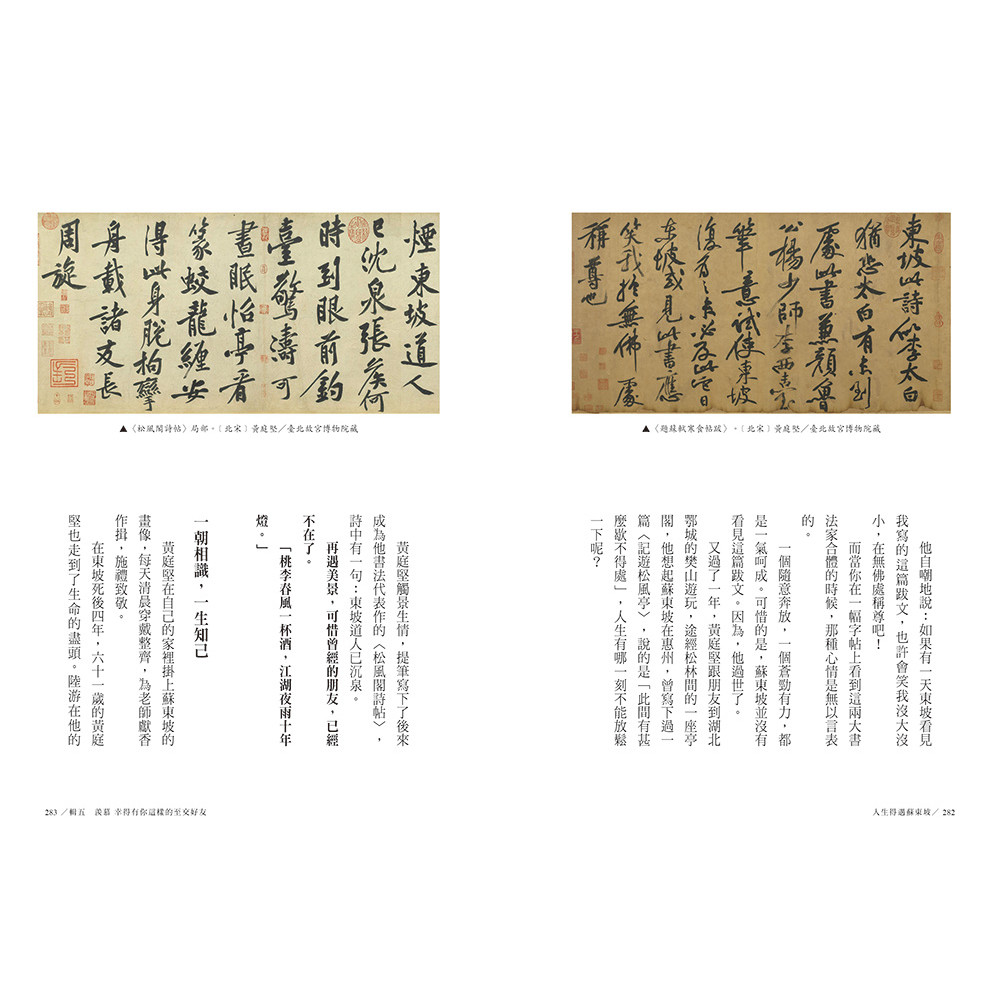 東坡此詩似李太白
猶恐太白有未到
處此書兼顏魯
公楊少師李西臺
筆意試使東坡
復為之未必及此它日
東坡或見此書應
笑我於無佛處
稱尊也
▲〈題蘇軾寒食帖跋〉。〔北宋〕黃庭堅／臺北故宮博物院藏
他自嘲地說：如果有一天東坡看見
我寫的這篇跋文，也許會笑我沒大沒
小，在無佛處稱尊吧！
而當你在一幅字帖上看到這兩大書
法家合體的時候，那種心情是無以言表
的。
一個隨意奔放，一個蒼勁有力，都
是一氣呵成。可惜的是，蘇東坡並沒有
看見這篇跋文。因為，他過世了。
又過了一年，黃庭堅跟朋友到湖北
鄂城的樊山遊玩，途經松林間的一座亭
閣，他想起蘇東坡在惠州，曾寫下過一
篇〈記遊松風亭〉，說的是「此間有甚
麼歇不得處」，人生有哪一刻不能放鬆
一下呢？
人生得遇蘇東坡／ 282
煙東坡道人
已沈泉張侯何
時到眼前釣
臺驚濤可
晝眠怡亭看
篆蛟龍纏安
得此身脫拘攣
舟載諸友長
周旋
▲〈松風閣詩帖〉局部。〔北宋〕黃庭堅／臺北故宮博物院藏
黃庭堅觸景生情，提筆寫下了後來
成為他書法代表作的〈松風閣詩帖〉，
詩中有一句：東坡道人已沉泉。
再遇美景，可惜曾經的朋友，已經
不在了。
「桃李春風一杯酒，江湖夜雨十年
燈。」
一朝相識，一生知己
黃庭堅在自己的家裡掛上蘇東坡的
畫像，每天清晨穿戴整齊，為老師獻香
作揖，施禮致敬。
在東坡死後四年，六十一歲的黃庭
堅也走到了生命的盡頭。陸游在他的
283 ／輯五　羨慕 幸得有你這樣的至交好友